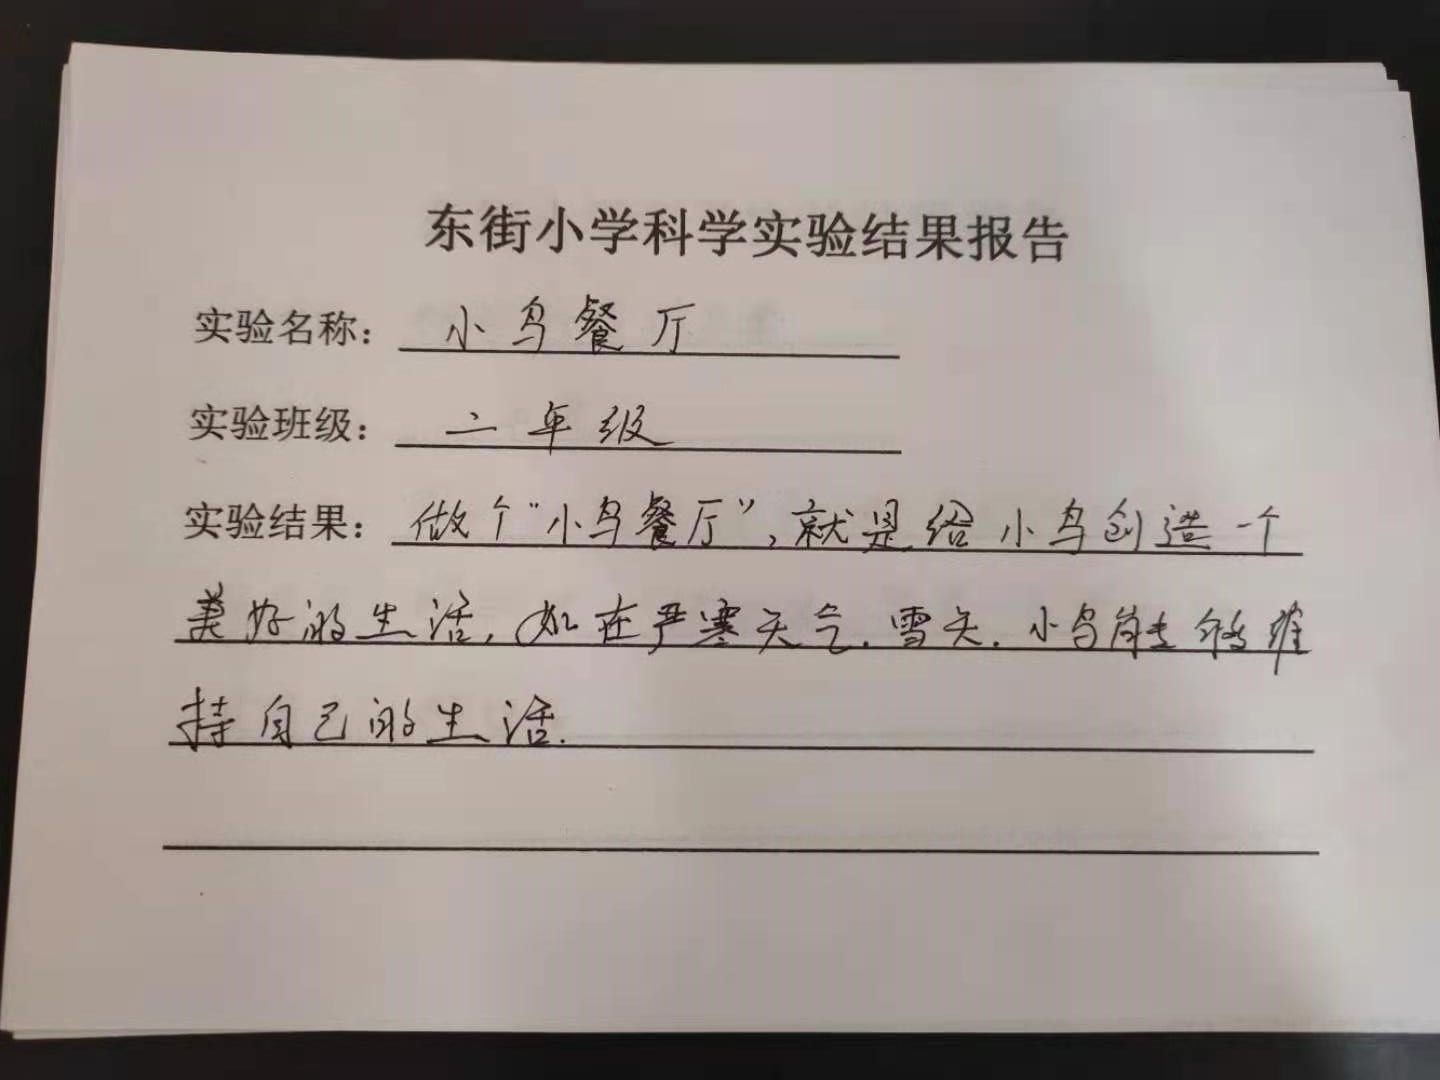 东街小学科学实验结果报告
实验名称：小鸟餐厅
实验班级：二年级
实验结果：做个“小鸟餐厅”，就是给小鸟创造一个
美好的生活，如在严寒天气.雪天.小鸟能够维
持自己的生活.